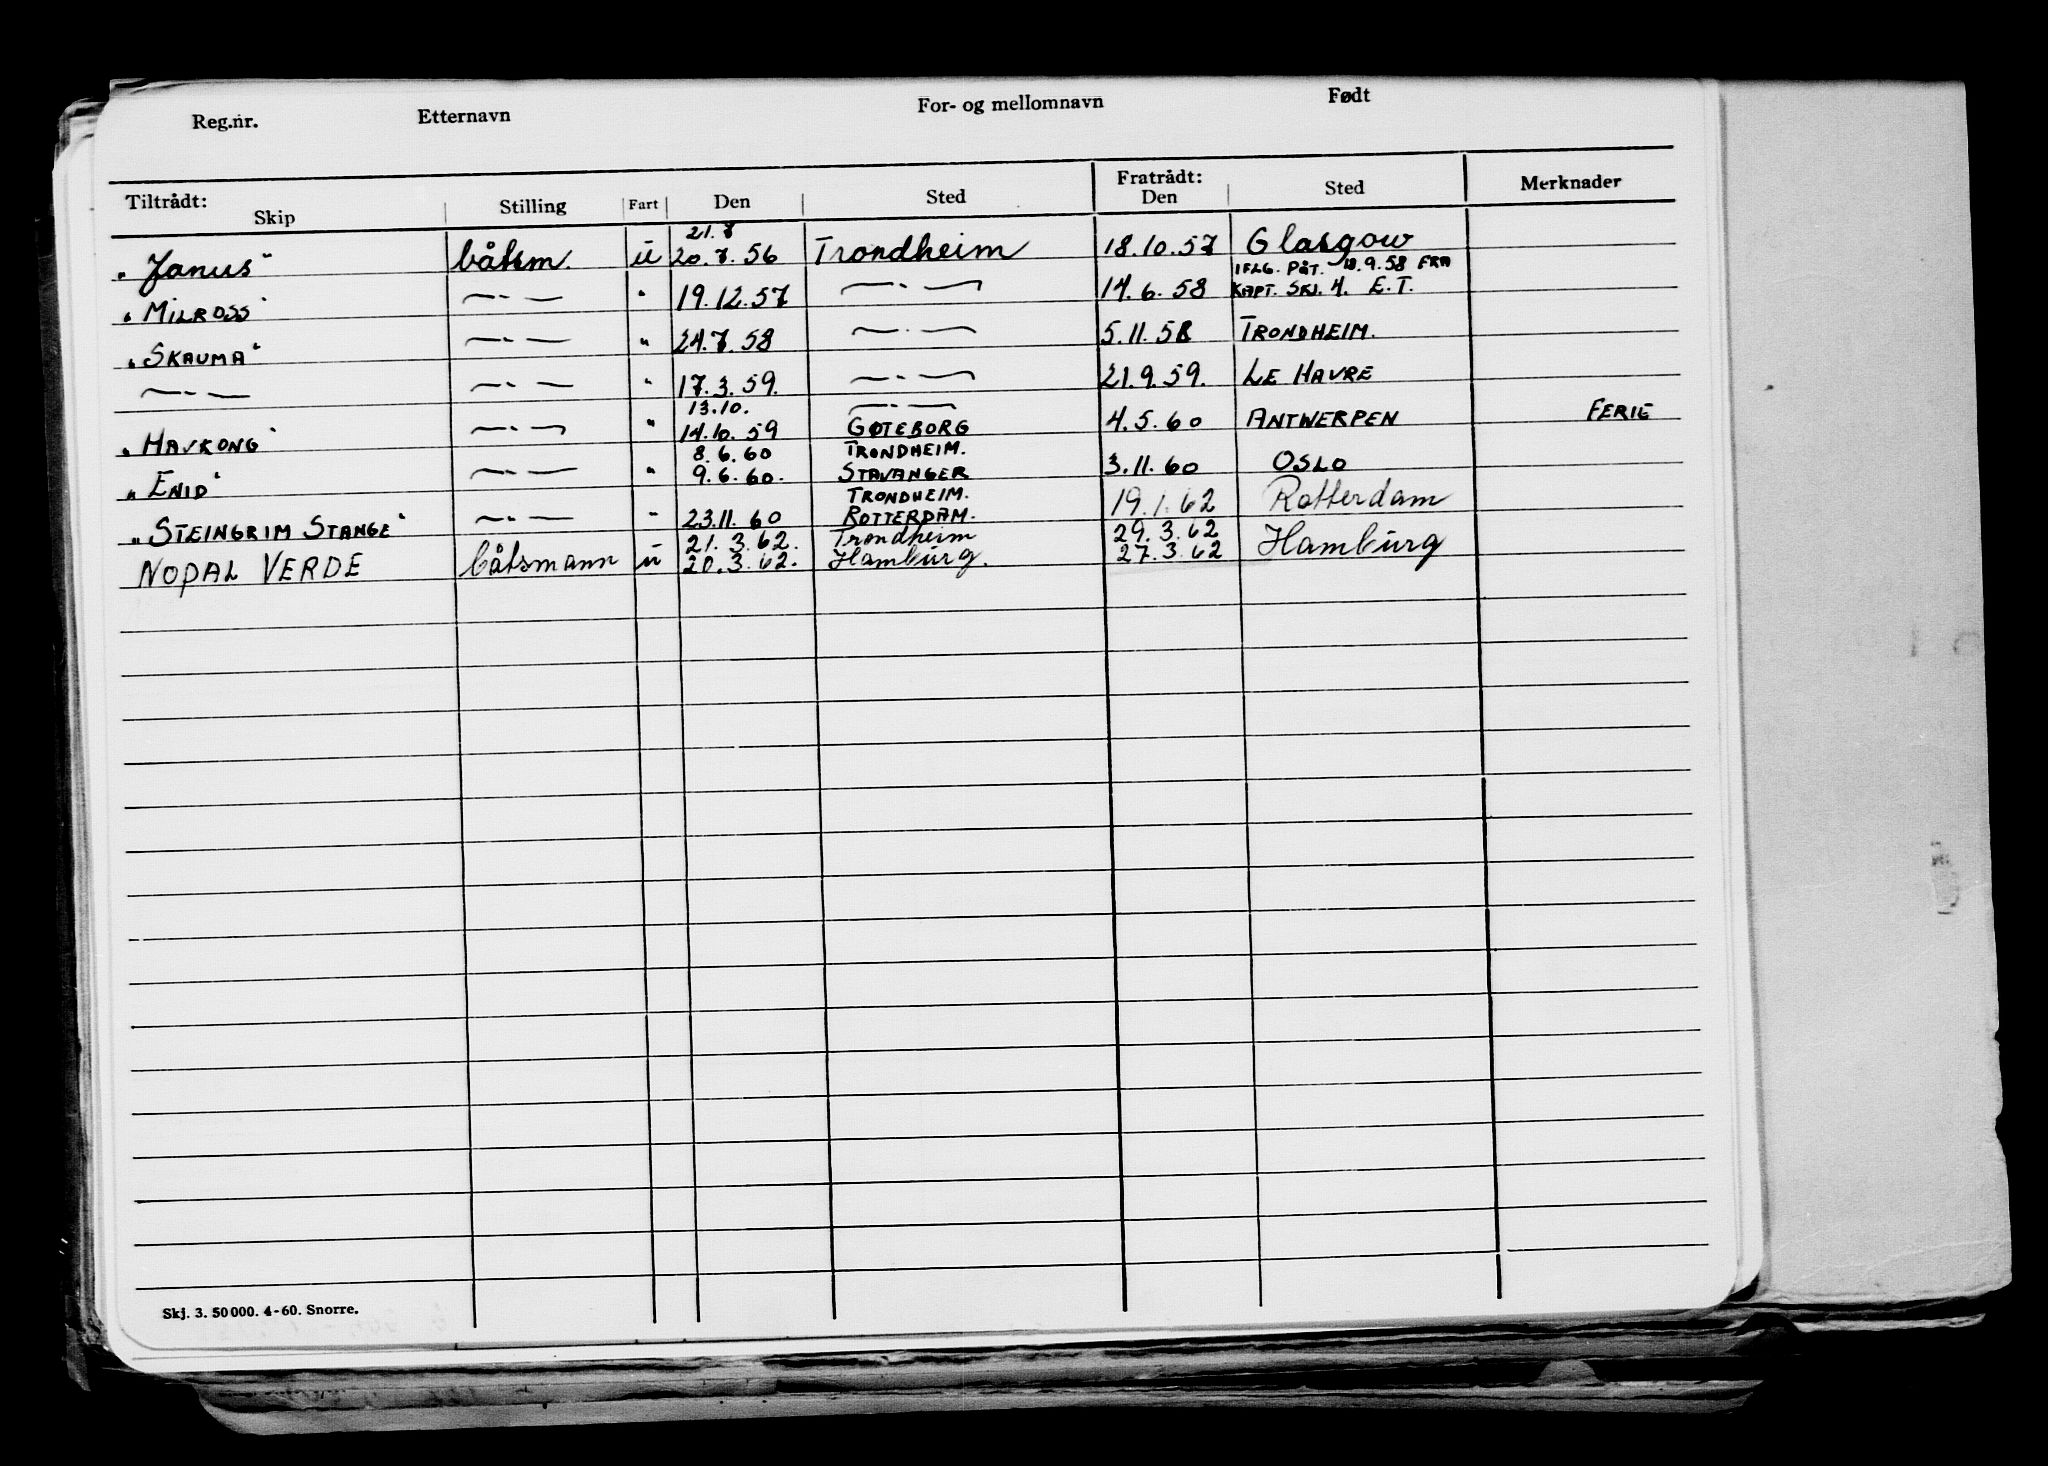 Reg.nr. Etternavn For- og mellomnavn Født
Tiltrådt: Fratrådt:
Skip Stilling Fart Den Sted Den Sted Merknader
21.7
"Janus" båtsm. u 20.7.56 Trondheim 18.10.57 Glasgow
IFLG. PÅT. 18.9.58 FRA
"MILROSS" —"— " 19.12.57 —"— 14.6.58 KAPT. SKJ. 4. E.T.
"SKAUMA" —"— " 24.7.58 —"— 5.11.58 TRONDHEIM.
—"— —"— " 17.3.59. —"— 21.9.59. LE HAVRE
13.10. —"—
"HAVKONG" —"— " 14.10.59 GØTEBORG 4.5.60 ANTWERPEN FERIE
8.6.60 TRONDHEIM.
"ENID" —"— " 9.6.60. STAVANGER 3.11.60 OSLO
TRONDHEIM.
"STEINGRIM STANGE" —"— " 23.11.60 ROTTERDAM. 19.1.62 Rotterdam
21.3.62. Trondheim 29.3.62
NOPAL VERDE båtsmann u 20.3.62. Hamburg. 27.3.62 Hamburg
Skj. 3. 50 000. 4-60. Snorre.